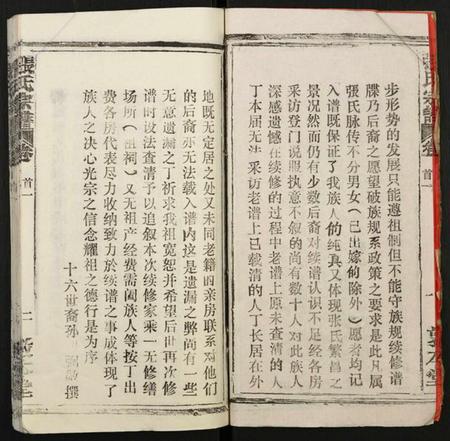 步形势的发展只能遵祖制但不能守族规续修谱
牒乃后裔之愿望破族规系政策之要求是此凡属
張氏脉传不分男女（已出嫁的除外）愿者均记
入谱既保证了我族人的纯真又体现張氏繁昌之
景况然而仍有少数后裔对续谱认识不足经各房
采访登门说服执意不叙的尚有数十人对此族人
深感遗憾在续修的过程中老谱上原未查清的人
丁本届无法采访老谱上已载清的人丁长居在外
張氏宗譜 卷首一
地既无定居之处又未同老籍的亲房联系对他们
的后裔亦无法载入谱内这是遗漏之万有一些
无意遗漏之丁祈求我祖宽恕并希望后世再次修
谱时设法查清予以追叙本次续修家乘一无修缮
场所（祖祠）又无祖产经费需阖族人等按丁出
费各房代表尽力收纳致力於续谱之事成体现了
族人之决心光宗之信念耀祖之德行是为序
十六世裔孙 撰
張氏宗譜 卷首一